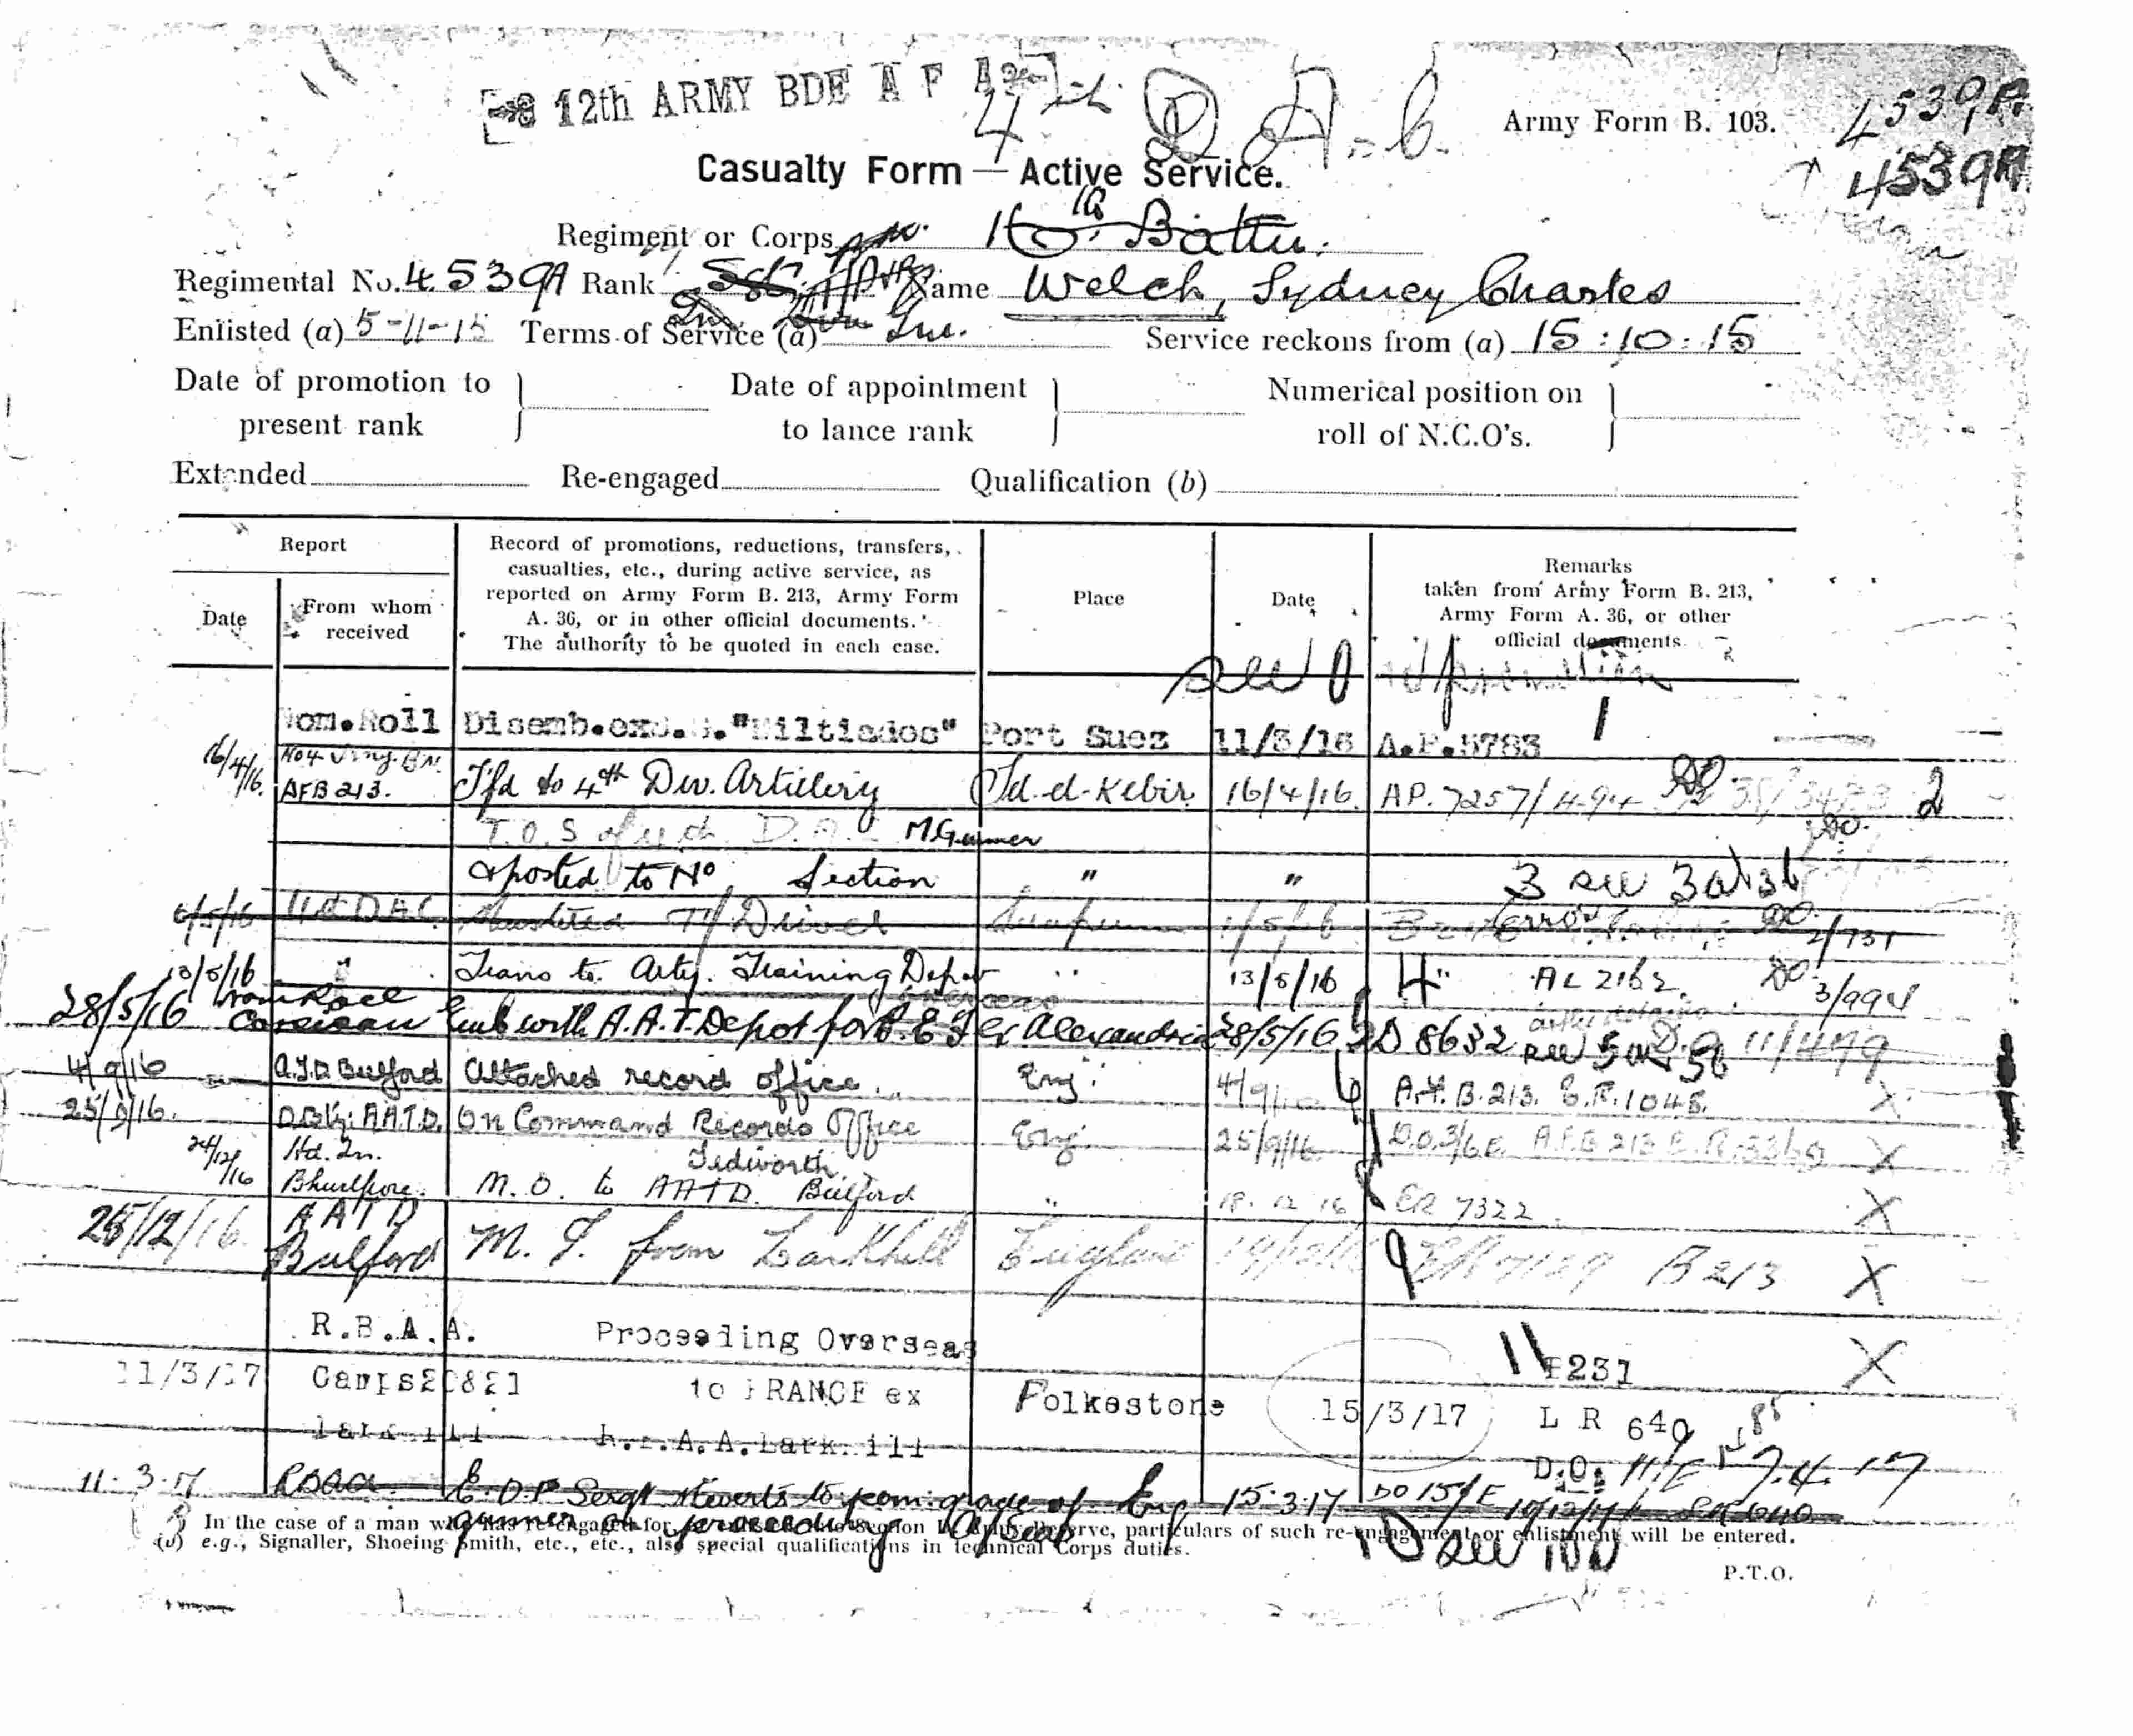 12th ARMY BDE A F A
4th D A. C.
Army Form B. 103.
4539A
4539A
Casualty Form — Active Service.
Regiment or Corps
Regimental No. 4539A Rank Name Welch, Sydney Charles
Enlisted (a) 5-11-15 Terms of Service (a) Service reckons from (a) 15:10:15
Date of promotion to present rank Date of appointment to lance rank Numerical position on roll of N.C.O's.
Extended Re-engaged Qualification (b)
Report
Date
From whom received
Record of promotions, reductions, transfers, casualties, etc., during active service, as reported on Army Form B. 213, Army Form A. 36, or in other official documents. The authority to be quoted in each case.
Place
Date
Remarks taken from Army Form B. 213, Army Form A. 36, or other official documents
Nom. Roll Disemb. ex "Miltiades" Port Suez 11/3/16 A.P.5783 1
16/4/16. AFB 213. Tfd to 4th Div. Artillery Tel-el-Kebir 16/4/16. AP. 7257/ 2
T.O.S of 4th D.A. M Gunner
& posted to No Section " " 3 see 3a & 3b
6/5/16 Mustered T/ Driver Error DO. 2/731
13/5/16 " Trans to Arty. Training Depot " 13/5/16 4 AL 2162. DO 3/994
28/5/16 Nom Roll Corsican Emb with A.A.T. Depot for B.E.F. ex Alexandria 28/5/16 D 8632 see 5a & 5b D.O. 11/479
4/9/16 A.T.D. Bulford Attached record office Eng. 4/9/16 6 A.F. B. 213. E.R. 1048. X
25/9/16. AATD. On Command Records Office Eng. 25/9/16. A.F.B 213 X
24/12/16 Hd. Qn. Bhurtpore. M.O. to AATD. Bulford Tidworth " 18.12.16 ER 7322 X
25/12/16. AATD Bulford M. I. from Larkhill England 9 B 213 X
R.B.A.A. Proceeding Overseas 11 X
11/3/17 Camps 20 & 21 to FRANCE ex Folkestone 15/3/17 L R 640
Larkhill R.B.A.A. Larkhill D.O. 7.4.17
11.3.17 RBAA. E.D.P. Sergt reverts to perm: grade of gunner on proceeding O/Seas Eng 15.3.17 DO 15/E
10 see 10a
In the case of a man who has re-engaged for, or enlisted into Section D, Army Reserve, particulars of such re-engagement or enlistment will be entered.
(b) e.g., Signaller, Shoeing Smith, etc., etc., also special qualifications in technical Corps duties.
P.T.O.